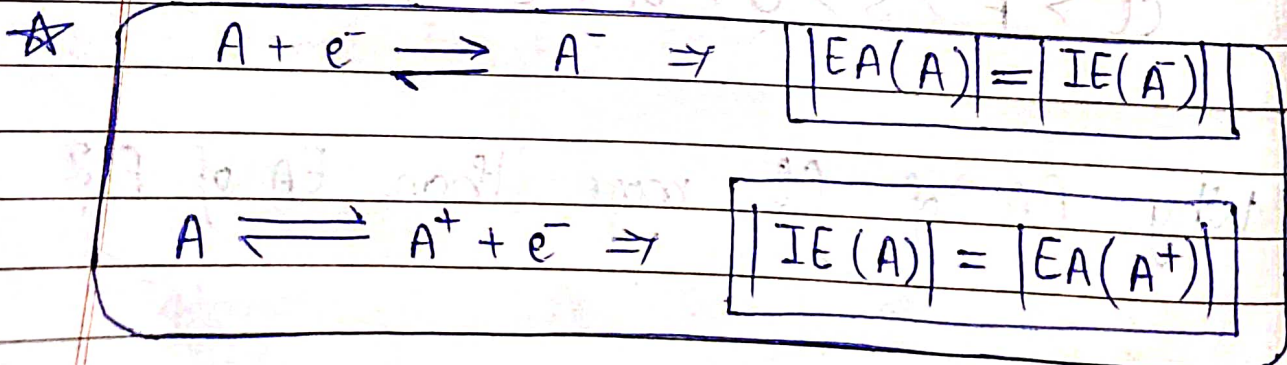 ☆ A + e⁻ ⇌ A⁻ ⇒ |EA(A)| = |IE(A⁻)|
A ⇌ A⁺ + e⁻ ⇒ |IE(A)| = |EA(A⁺)|